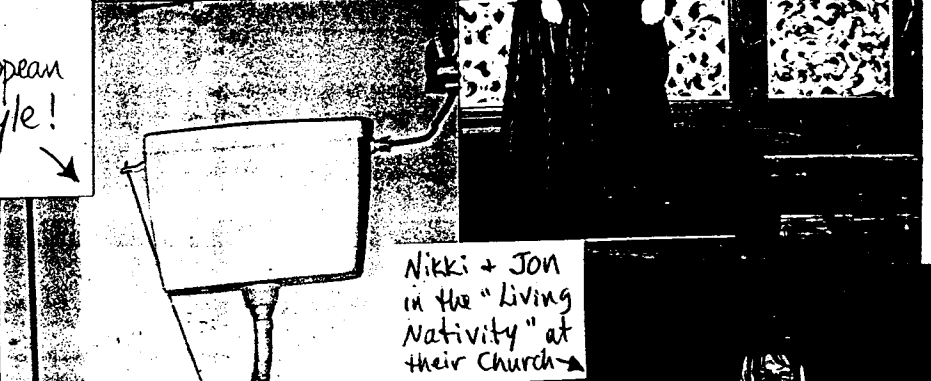 opean
yle!
Nikki + Jon
in the "Living
Nativity" at
their Church